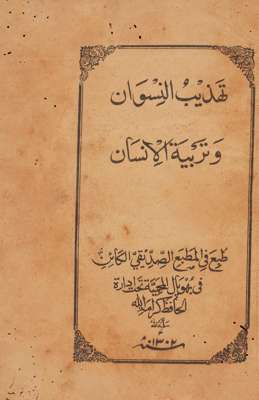 تهذيب النسوان
وتربية الإنسان
طبع في المطبع الصديقي الكائن
في بهوپال المحمية تحت ادارة
الحافظ كرامة الله
سنه ١٣٠٢